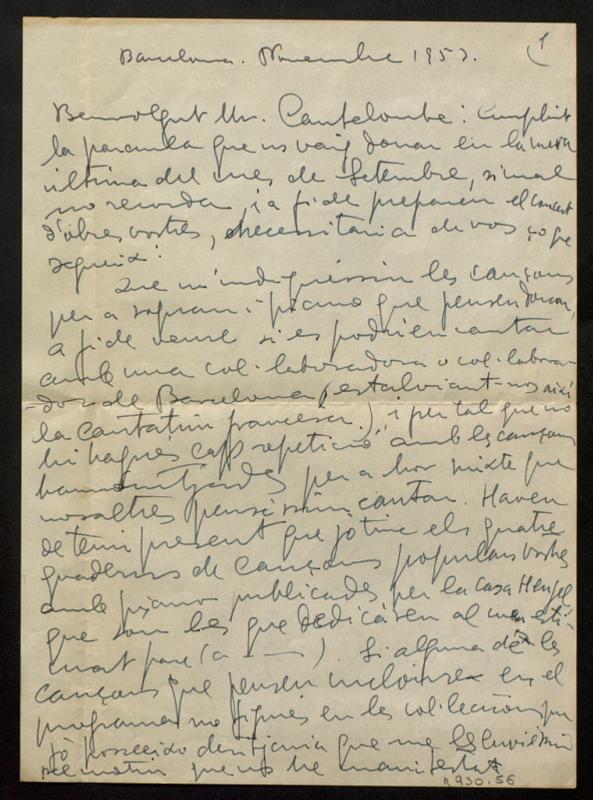 Barcelona. Novembre 1953.
1
Benvolgut Mr. Canteloube: Complint
la paraula que us vaig donar en la meva
última del mes de Setembre, si mal
no recorda, i a fi de preparar el concert
d'obres vostres, necessitaria de vos ço que
segueix:
Que m'indiquéssin les cançons
per a soprani i piano que pensen donar,
a fi de veure si es podrien cantar
amb una col·laboradora o col·labora-
dors de Barcelona (estalviant-nos així
la cantatriu francesa.) i per tal que no
hi hagués cap repetició amb les cançons
harmonitzades per a chor mixte que
nosaltres penséssim cantar. Haven
de tenir present que jo tinc els quatre
quaderns de cançons populars vostres
amb piano publicades per la casa Heugel
que són les que dedicàren al meu esti-
mat pare (a ———). Si alguna de les
cançons que pensen incloure en el
programa no figurés en les col·leccions que
jo posseeixo desitjaria que me les enviéssin
pel motiu que us he manifestat
M 930.56